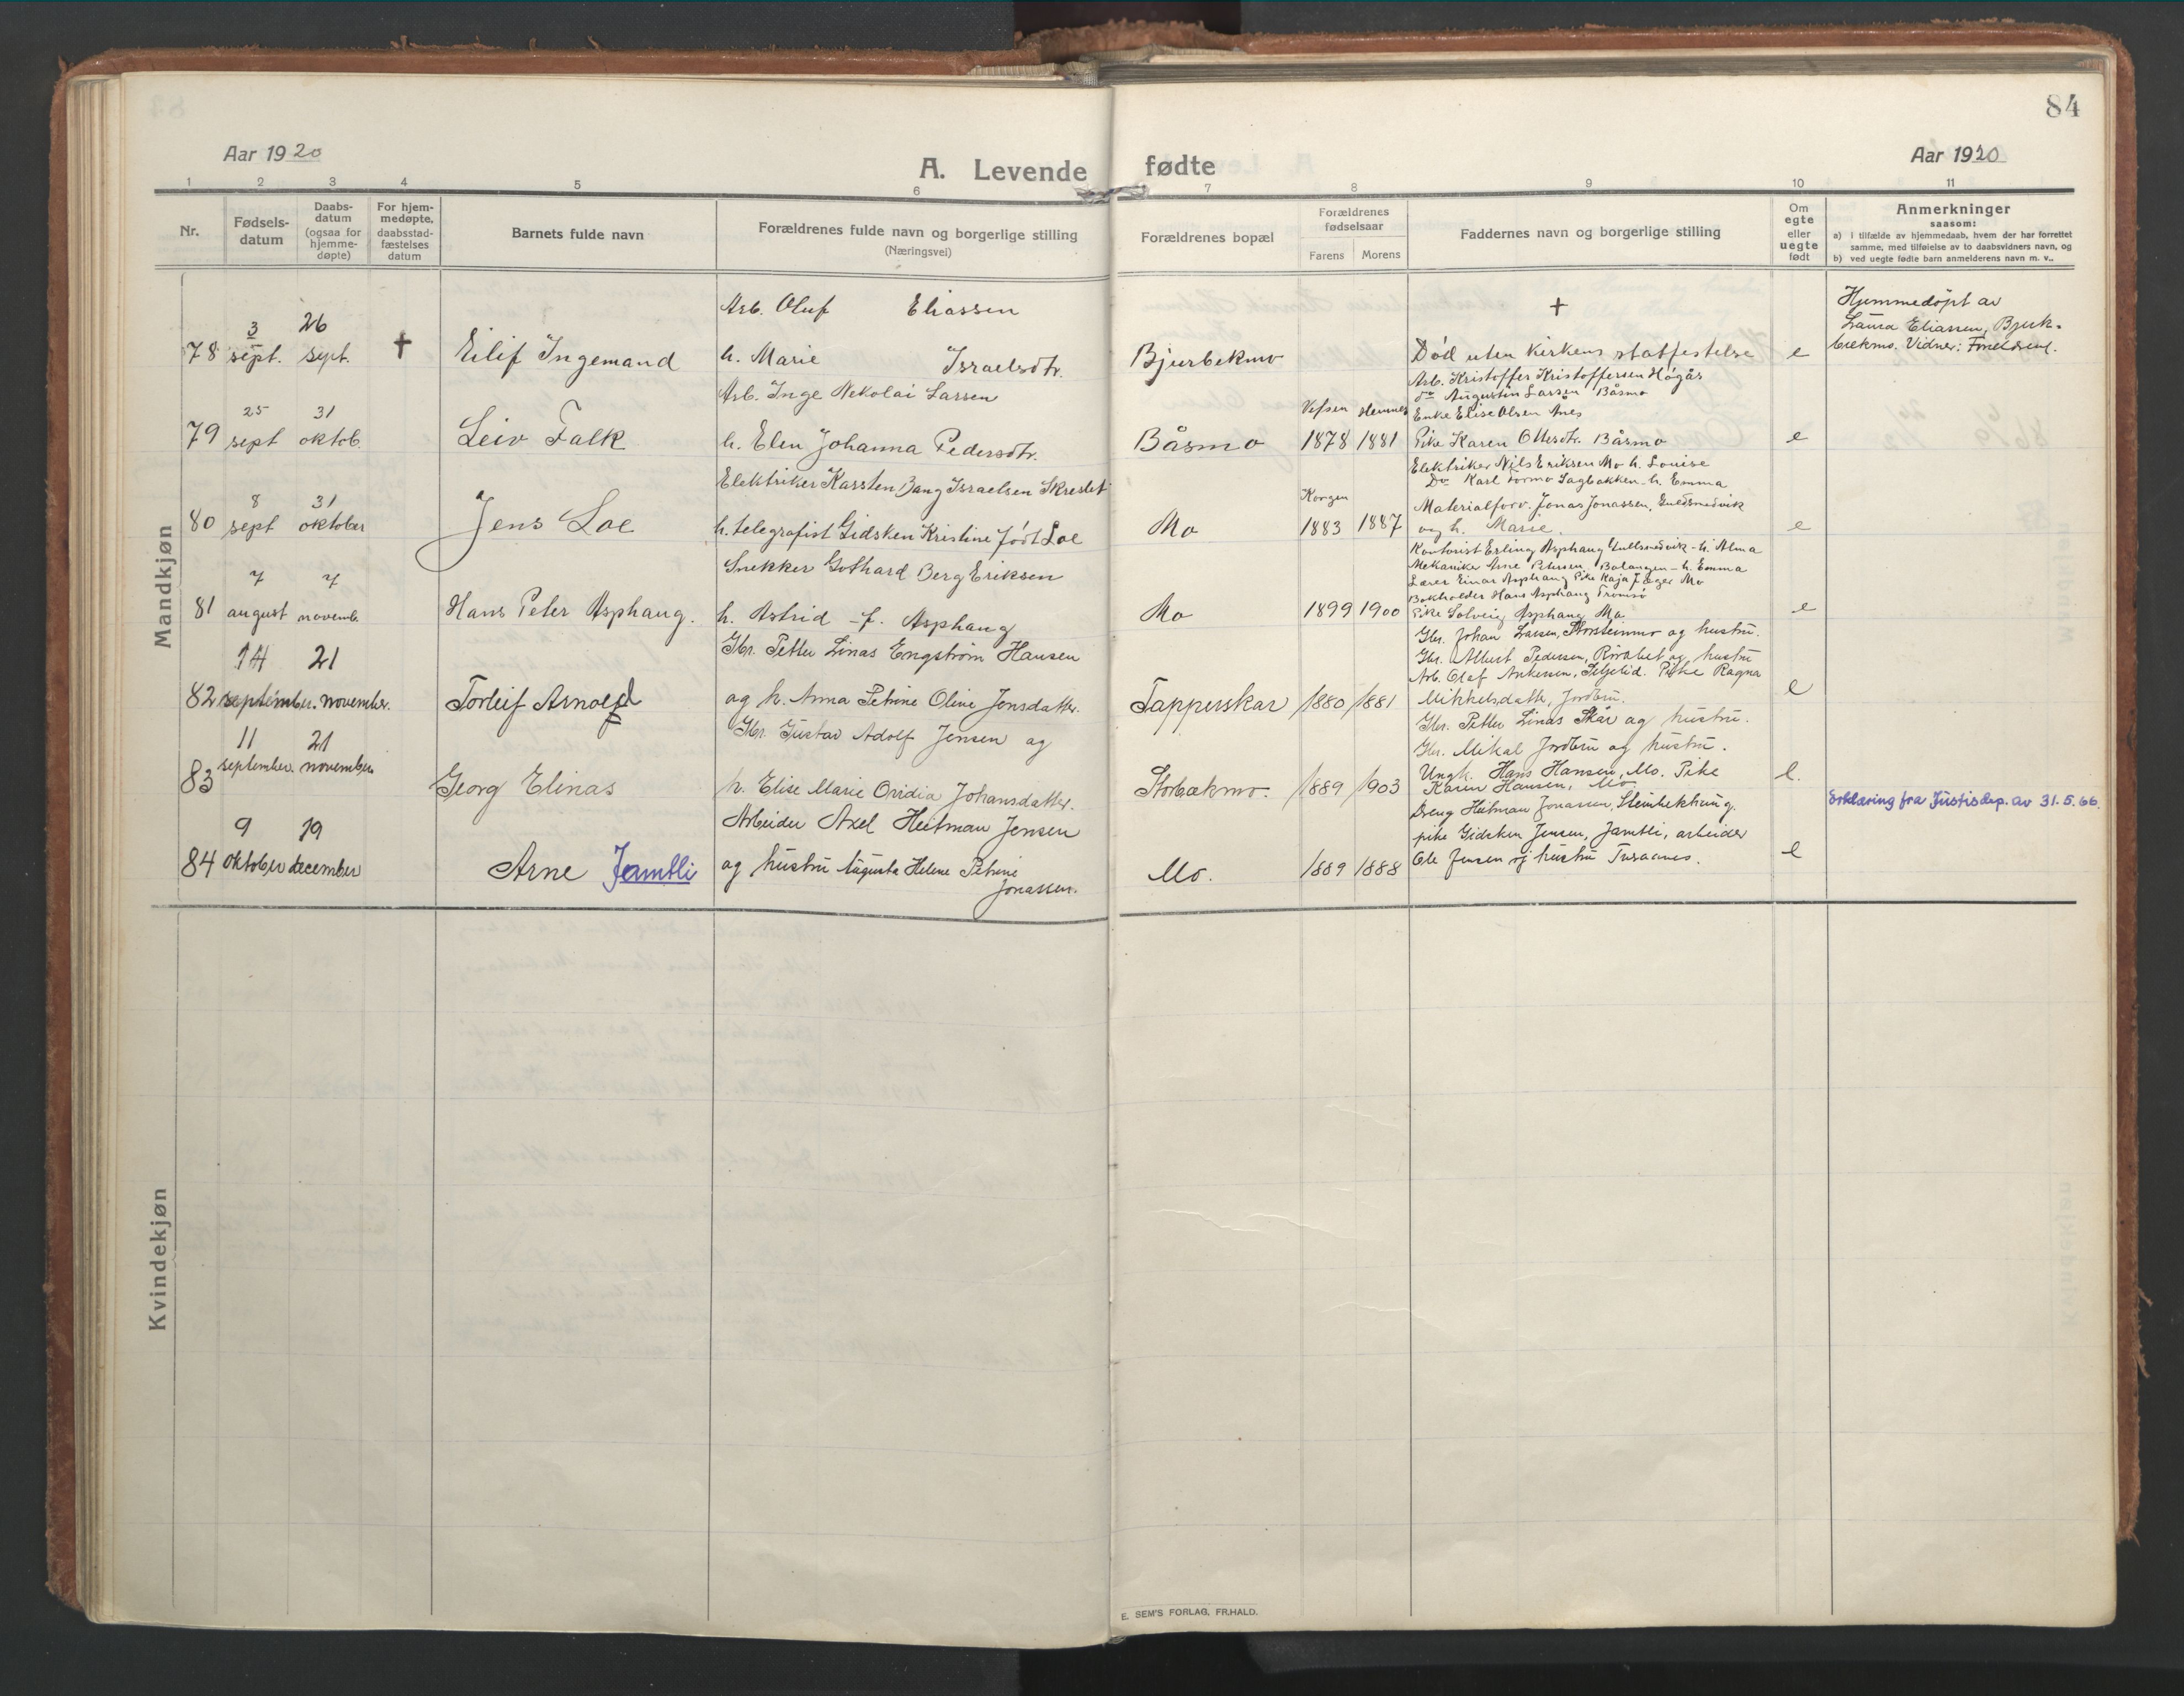 84
Aar 1920
A. Levende fødte
Aar 1920
1 2 3 4 5 6 7 8 9 10 11
Nr.
Fødsels-
datum
Daabs-
datum
(ogsaa for
hjemme-
døpte)
For hjem-
medøpte,
daabsstad-
fæstelses
datum
Barnets fulde navn
Forældrenes fulde navn og borgerlige stilling
(Næringsvei)
Forældrenes bopæl
Forældrenes
fødselsaar
Farens Morens
Faddernes navn og borgerlige stilling
Om
egte
eller
uegte
født
Anmerkninger
saasom:
a) i tilfælde av hjemmedaab, hvem der har forrettet
samme, med tilføielse av to daabsvidners navn, og
b) ved uegte fødte barn anmelderens navn m. v..
Mandkjøn
78
3
sept.
26
sept.
†
Eilif Ingemand
Arb. Oluf Eliassen
h. Marie Israelsdtr.
Bjurbekmo
†
Død uten kirkens statfestelse
e
Hjemmedøpt av
Laura Eliassen, Bjerk-
bækmo. Vidner:
79
25
sept
31
oktob.
Leiv Falk
Arb. Inge Nekolai Larsen
h. Elen Johanna Pedersdtr.
Båsmo
Vefsen
1878
Hemnes
1881
Arb. Kristoffer Kristoffersen Høgås
do Augustin Larsen Båsmo
Enke Elise Olsen Anes
Pike Karen Ottesdtr. Båsmo
e
80
8
sept
31
oktober
Jens Loe
Elektriker Karsten Bang Israelsen Skreslet
h. telegrafist Gidsken Kristine født Loe
Mo
Korgen
1883 1887
Elektriker Nils Eriksen Mo h. Louise
Do Karl Formo Sagbakken h. Emma
Materialforv. Jonas Jonassen, Guldsmedvik
og h. Marie.
e
81
7
august
7
novemb.
Hans Peter Asphaug.
Snekker Gothard Berg Eriksen
h. Astrid f. Asphaug
Mo
1899 1900
Kontorist Erling Asphaug Gullsmedvik - h. Alma
Mekaniker Arne Petersen, Balangen - h. Emma
Lærer Einar Asphaug Pike Kaja Jæger Mo
Bokholder Hans Asphaug Tromsø
Pike Solveig Asphaug Mo
e
82
14
september.
21
november.
Torleif Arnold
Gbr. Petter Linas Engstrøm Hansen
og h. Anna Petrine Oline Jensdatter.
Tapperskar
1880 1881
Gbr. Johan Larsen, Storsteinmo og hustru.
Gbr. Albert Pedersen, og hustru
Arb. Olaf Ankersen, Seljelid. Pike Ragna
Mikkelsdatter, Jordbru.
e
83
11
september.
21
november
Georg Elinas
Gbr. Gustav Adolf Jensen og
h. Elise Marie Ovidia Johansdatter.
Storbækmo.
1889 1903
Gbr. Petter Linas Skår og hustru.
Gbr. Mikal Jordbru og hustru.
Ungk. Hans Hansen, Mo. Pike
Karen Hansen, Mo.
e.
84
9
oktober
19
december
Arne Jamtli
Arbeider Axel Heitman Jensen
og hustru Augusta Helene Petrine
Jonassen.
Mo.
1889 1888
Dreng Heitman Jonassen, Steinbekhaug,
pike Gidsken Jensen, Jamtli, arbeider
Ole Jensen og hustru
e
Erklæring fra Justisdep. av 31.5.66.
Kvindekjøn
E. SEM'S FORLAG, FR.HALD.